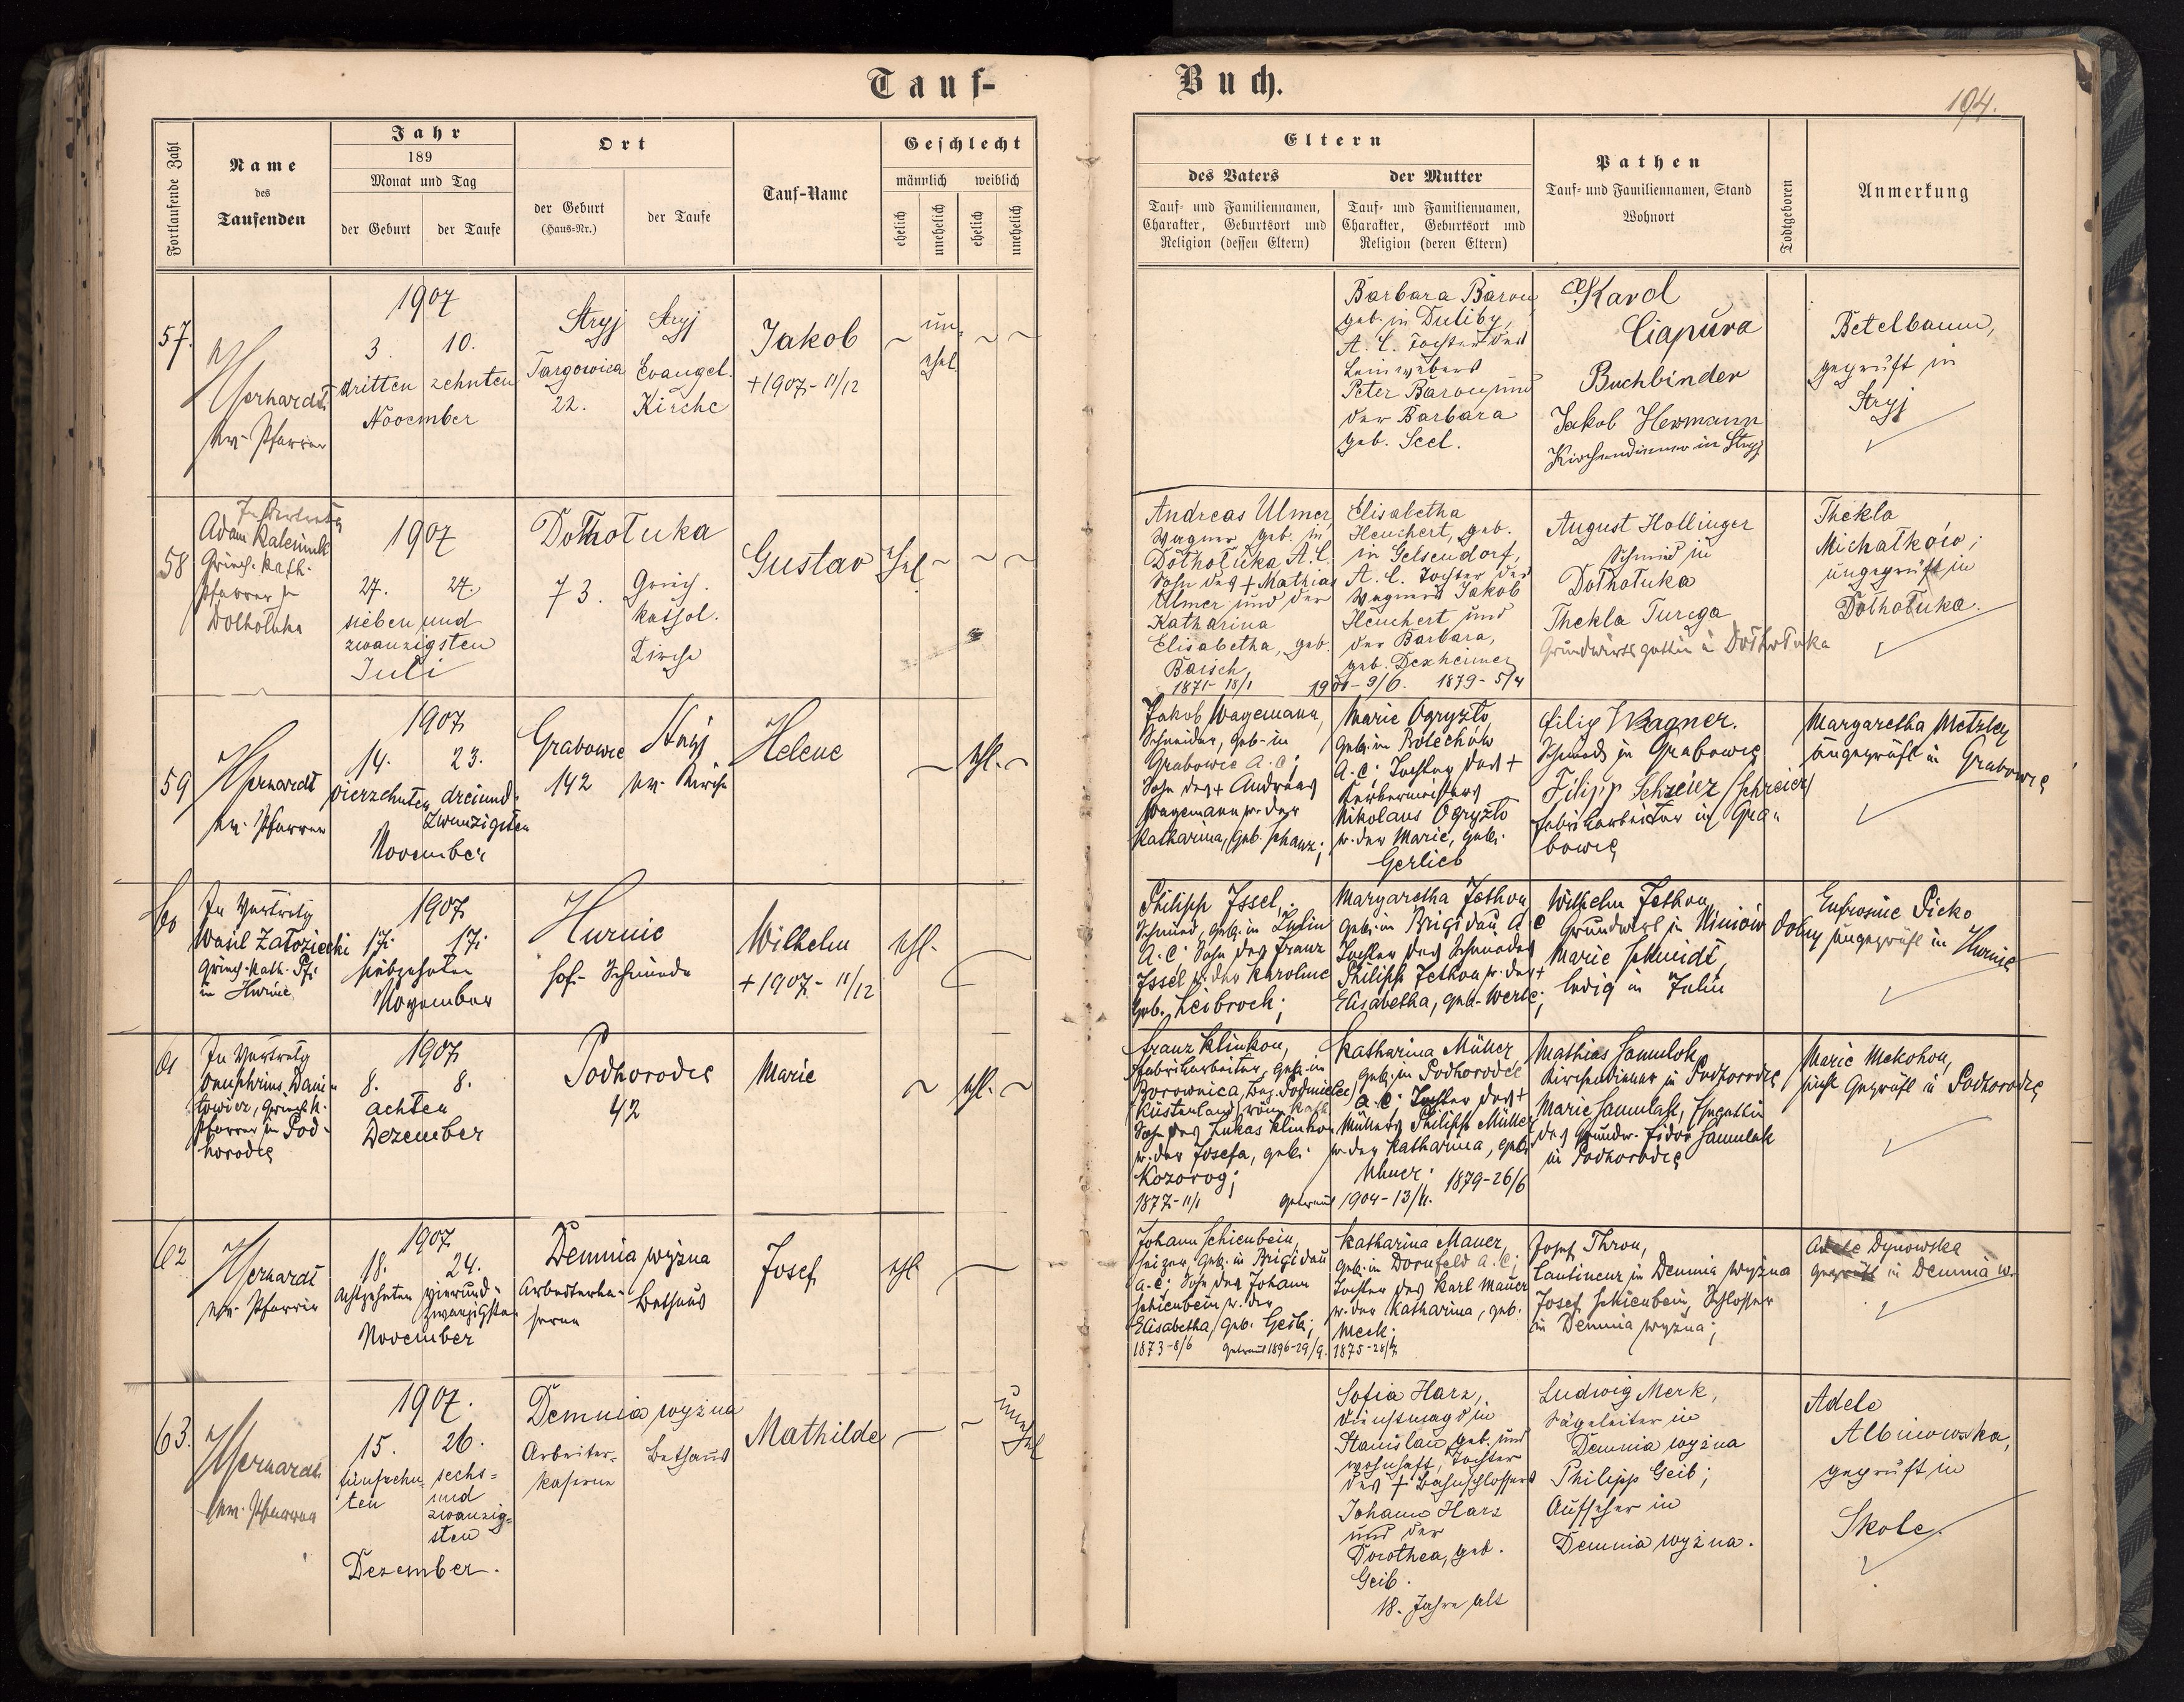 Tauf-
Buch.
194.
Fortlaufende Zahl
Name
des
Taufenden
Jahr
189
Monat und Tag
der Geburt
der Taufe
Ort
der Geburt
(Haus-Nr.)
der Taufe
Tauf-Name
Geschlecht
männlich
weiblich
ehelich
unehelich
ehelich
unehelich
Eltern
des Vaters
der Mutter
Tauf- und Familiennamen,
Charakter, Geburtsort und
Religion (dessen Eltern)
Tauf- und Familiennamen,
Charakter, Geburtsort und
Religion (deren Eltern)
Pathen
Tauf- und Familiennamen, Stand
Wohnort
Todtgeboren
Anmerkung
57.
ev. Pfarrer
1907
3. 10.
dritten zehnten
November
Stryj
Targowica
22.
Stryj
Evangel.
Kirche
Jakob
+ 1907 - 11/12
un-
ehel.
Barbara Baron
geb. in Duliby,
A. C. Tochter des
Leinwebers
Peter Baron und
der Barbara
geb. Seel.
Karol
Ciapura
Buchbinder
Jakob Hermann
Kirchendiener in Stryj
Betelbaum,
geprüft in
Stryj
58
In Vertretung
Adam
Griech. kath.
Pfarrer in
Dołhołuka
1907
27. 27.
sieben und
zwanzigsten
Juli
Dołhołuka
73.
Griech.
kathol.
Kirche
Gustav
Ehel.
Andreas Ulmer,
Wagner geb. in
Dołhołuka A. C.
Sohn des + Mathias
Ulmer und der
Katharina
Elisabetha, geb.
Baisch
1871 - 18/1
1901 - 9/6.
Elisabetha
Heuchert, geb.
in Gelsendorf,
A. C. Tochter des
Wagners Jakob
Heuchert und
der Barbara,
geb. Dexheimer
1879 - 5/4
August Hollinger
Schmied in
Dołhołuka
Thekla Turega
Grundwirtsgattin in Dołhołuka
Thekla
Michałków;
ungeprüft in
Dołhołuka.
59
ev. Pfarrer
1907
14. 23.
vierzehnten dreiund-
zwanzigsten
November
Grabowce
142
Stryj
ev. Kirche
Helene
ehl.
Jakob Wagemann,
Schneider, geb. in
Grabowce A. C;
Sohn des + Andreas
Wagemann u. der
Katharina, geb. Schanz;
Marie Ogryzło,
geb. in Bolechów
A. C; Tochter des +
Gerbermeisters
Nikolaus Ogryzło
u. der Marie, geb.
Gerlieb
Filip Wagner.
Schmied in Grabowce
Filipp Schreier (Schreier)
Fabriksarbeiter in Gra-
bowce
Margaretha Metzler
ungeprüft in Grabowce
60
In Vertretg
Wasil Załoziecki
Griech. Kath. Pf.
in Hurnie
1907
17. 17.
siebzehnten
November
Hurnie
Hof-Schmiede
Wilhelm
+ 1907 - 11/12
ehl.
Philipp Issel,
Schmied, geb. in
A. C; Sohn des Franz
Issel u. der Karoline
geb. Leibrock;
Margaretha Jethon
geb. in Brigidau, A. C
Tochter des Schmiedes
Philipp Jethon u. der +
Elisabetha, geb. Werle;
Wilhelm Jethon
Grundwirt in Niniów Dolny
Marie Schmidt,
ledig in
Eufrosine Dicko
ungeprüft in Hurnie
61
In Vertretg
Onuphrius Dani-
łowicz, Griech. k.
Pfarrer in Pod-
horodce
1907
8. 8.
achten
Dezember
Podhorodce
42
Marie
ehl.
Franz Klinkon,
Fabriksarbeiter, geb. in
Borownica,
Küstenland, röm. kath.
Sohn des Lukas Klinkon
u. der Josefa, geb.
Kozorog;
1877 - 11/1
getraut 1904 - 13/11.
Katharina Müller
geb. in Podhorodce
A. C. Tochter des +
Müllers Philipp Müller
u. der Katharina, geb.
Ulmer;
1879 - 26/6
Mathias Samulak,
Kirchendiener in Podhorodce
Marie Samulak, Ehegattin
des Grundw. Fidor Samulak
in Podhorodce
Marie Mokohon,
nicht Geprüft in Podhorodce
62
ev. Pfarrer
1907
18. 24.
Achtzehnten vierund-
zwanzigsten
November
Demnia wyżna
Arbeiterka-
serne
Bethaus
Josef
ehl
Johann Schienbein,
Heizer, geb. in Brigidau
A. C; Sohn des Johann
Schienbein u. der
Elisabetha, geb. Geib;
1873 - 8/6
getraut 1896 - 29/9.
Katharina Mauer,
geb. in Dornfeld A. C;
Tochter des Karl Mauer
u. der Katharina, geb.
Merk;
1875 - 28/7
Josef Thron,
Cantineur in Demnia wyżna
Josef Schienbein, Schlosser
in Demnia wyżna;
Adele Dynowska
geprüft in Demnia w.
63.
ev. Pfarrer
1907.
15. 26.
fünfzehn-
ten
sechs-
und
zwanzig-
sten
Dezember.
Demnia wyżna
Arbeiter-
kaserne
Bethaus
Mathilde
unehel
Sofia Harz,
Dienstmagd in
Stanislau geb. und
wohnhaft, Tochter
des + Bahnschlossers
Johann Harz
und der
Dorothea, geb.
Geib.
18. Jahre alt
Ludwig Merk,
Sägeleiter in
Demnia wyżna
Philipp Geib;
Aufseher in
Demnia wyżna.
Adele
Albinowska,
geprüft in
Skole.